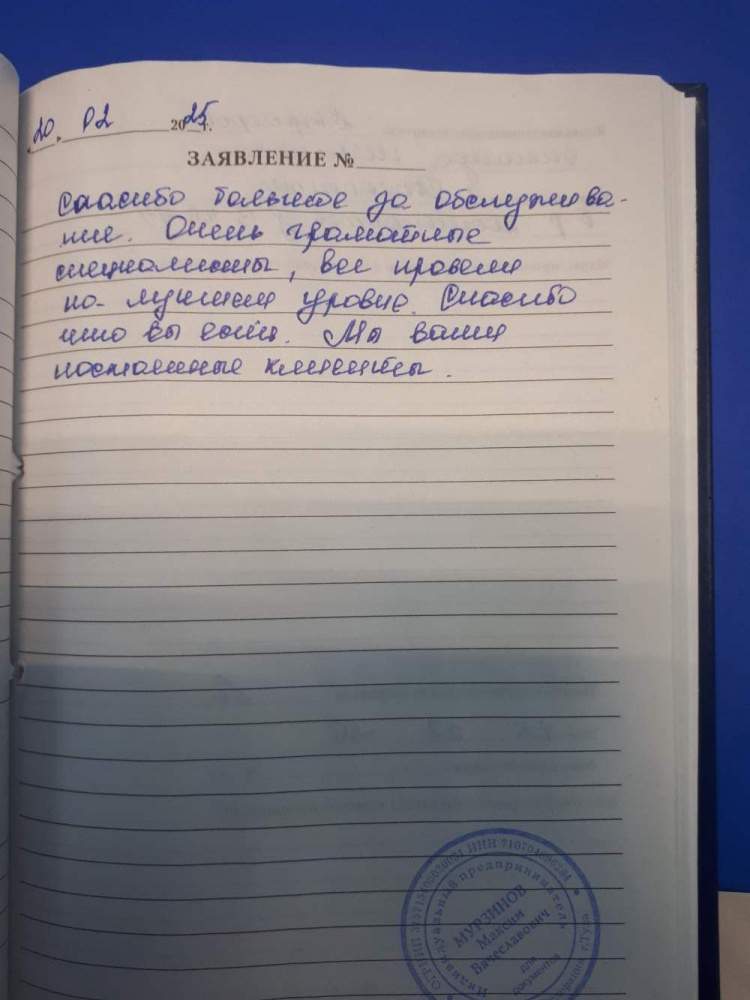 20. 02 2025г.
ЗАЯВЛЕНИЕ №
Спасибо большое за обслужива-
ние. Очень грамотные
специалисты, все провели
на лучшем уровне. Спасибо
что вы есть. Мы ваши
постоянные клиенты.
Индивидуальный предприниматель
МУРЗИНОВ
Максим
Вячеславович
для
документов